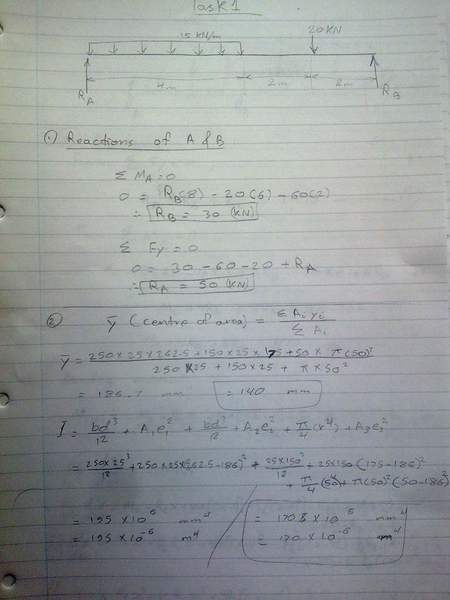 Task 1
15 KN/m 20 KN
4m 2m 2m
RA RB
① Reactions of A & B
Σ MA = 0
0 = RB(8) - 20(6) - 60(2)
∴ RB = 30 (KN)
Σ Fy = 0
0 = 30 - 60 - 20 + RA
∴ RA = 50 (KN)
② ȳ (centre of area) = Σ Ai yi / Σ Ai
ȳ = 250 × 25 × 262.5 + 150 × 25 × 175 + 50 × π(50)² / 250 × 25 + 150 × 25 + π × 50²
= 186.7 mm = 140 mm
I = bd³/12 + A₁e₁² + bd³/12 + A₂e₂² + π/4 (r⁴) + A₃e₃²
= 250×25³/12 + 250×25×(262.5-186)² + 25×150³/12 + 25×150(175-186)²
+ π/4 (50⁴) + π(50)² (50-186)²
= 195 × 10⁶ mm⁴ = 170.8 × 10⁶ mm⁴
= 195 × 10⁻⁶ m⁴ = 170 × 10⁻⁶ m⁴